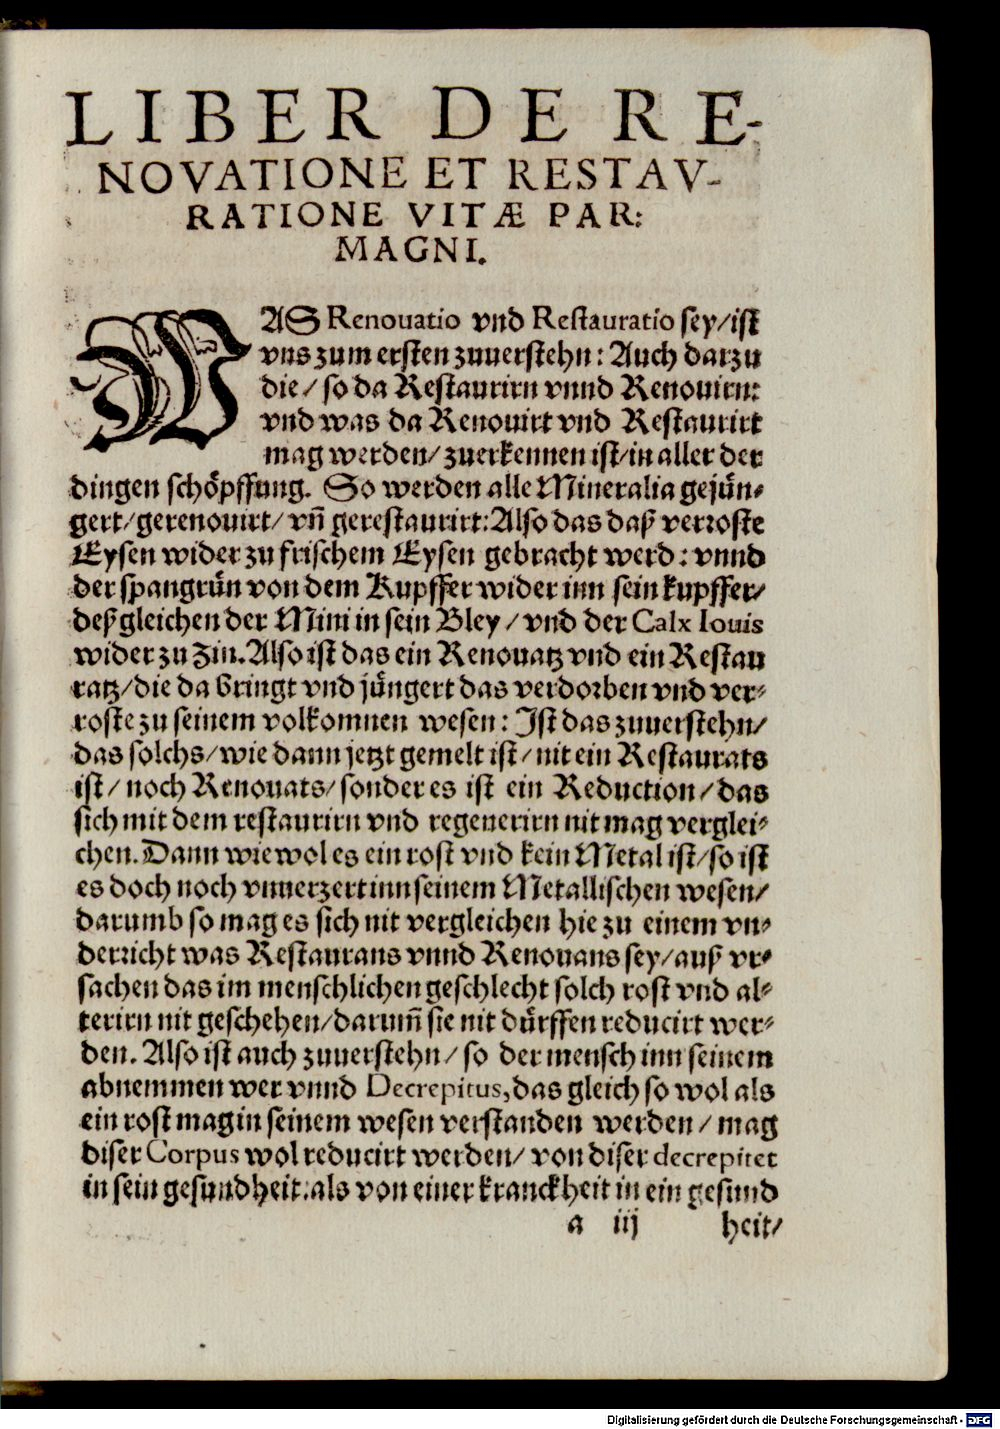 LIBER DE RE-
NOVATIONE ET RESTAV-
RATIONE VITÆ PAR:
MAGNI.
WAS Renouatio vnd Restauratio sey/ist
vns zum ersten zuuerstehn: Auch darzu
die/ so da Restaurirn vnnd Renouirn:
vnd was da Renouirt vnd Restaurirt
mag werden/ zuerkennen ist/in aller der
dingen schöpffung. So werden alle Mineralia gejün-
gert/gerenouirt/ vn̄ gerestaurirt: Also das daß verroste
Eysen wider zu frischem Eysen gebracht werd: vnnd
der spangrün von dem Kupffer wider inn sein kupffer/
deßgleichen der Mini in sein Bley / vnd der Calx Iouis
wider zu Zin. Also ist das ein Renouatz vnd ein Restau
ratz/die da bringt vnd jüngert das verdorben vnd ver-
roste zu seinem volkomnen wesen: Ist das zuuerstehn/
das solchs/wie dann jetzt gemelt ist/ nit ein Restaurats
ist/ noch Renouats/sonder es ist ein Reduction/das
sich mit dem restaurirn vnd regenerirn nit mag verglei-
chen. Dann wiewol es ein rost vnd kein Metal ist/so ist
es doch noch vnuerzert inn seinem Metallischen wesen/
darumb so mag es sich nit vergleichen hie zu einem vn-
derricht was Restaurans vnnd Renouans sey/auß vr-
sachen das im menschlichen geschlecht solch rost vnd al-
terirn nit geschehen/darum̄ sie nit dürffen reducirt wer-
den. Also ist auch zuuerstehn/ so der mensch inn seinem
abnemmen wer vnnd Decrepitus, das gleich so wol als
ein rost mag in seinem wesen verstanden werden/ mag
diser Corpus wol reducirt werden/ von diser decrepitet
in sein gesundheit: als von einer kranckheit in ein gesund
a iij heit/
Digitalisierung gefördert durch die Deutsche Forschungsgemeinschaft - DFG